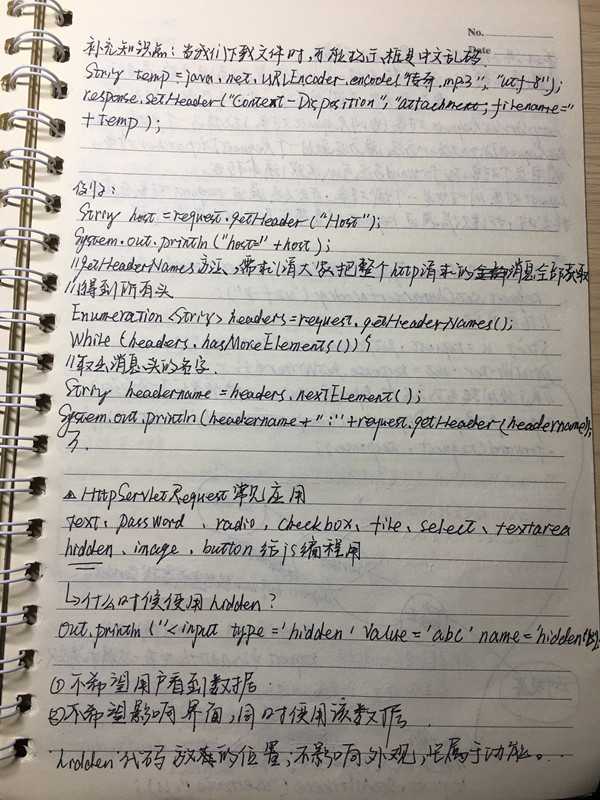 No.
Date
补充知识点：当我们下载文件时，可能提示框是中文乱码
String temp=java.net.URLEncoder.encode("传奇.mp3","utf-8");
response.setHeader("Content-Disposition","attachment; filename="
+temp);
例子：
String host=request.getHeader("Host");
System.out.println("host="+host);
//getHeaderNames方法，带来把整个http请求的消息全部获取
//得到所有头
Enumeration<String> headers=request.getHeaderNames();
While(headers.hasMoreElements()){
//取出消息头的名字
String headername=headers.nextElement();
System.out.println(headername+":"+request.getHeader(headername);
}.
HttpServletRequest 常见应用
text、password、radio、checkbox、file、select、textarea
hidden、image、button给js编程用
↳什么时候使用hidden?
out.println("<input type='hidden' value='abc' name='hidden
①不希望用户看到数据.
②不希望影响界面，同时使用该数据.
hidden代码放在的位置：不影响外观，属于功能。